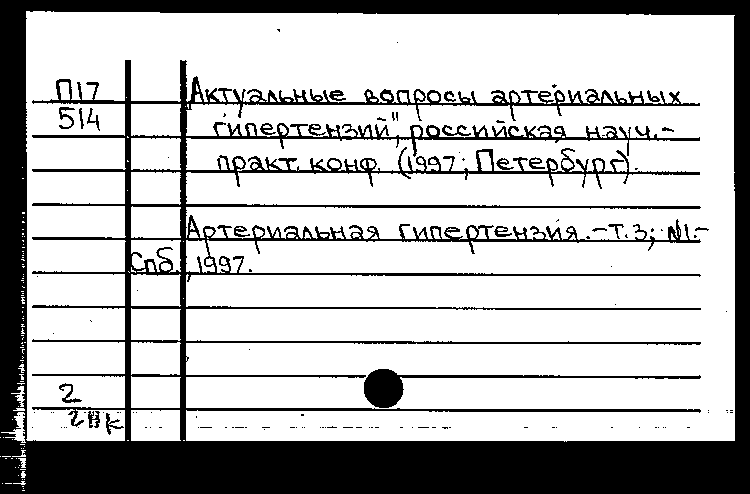 П17 Актуальные вопросы артериальных
514 гипертензий", российская науч.-
практ. конф. (1997; Петербург).
Артериальная гипертензия.-Т.3; №1.-
Спб., 1997.
2
2нк